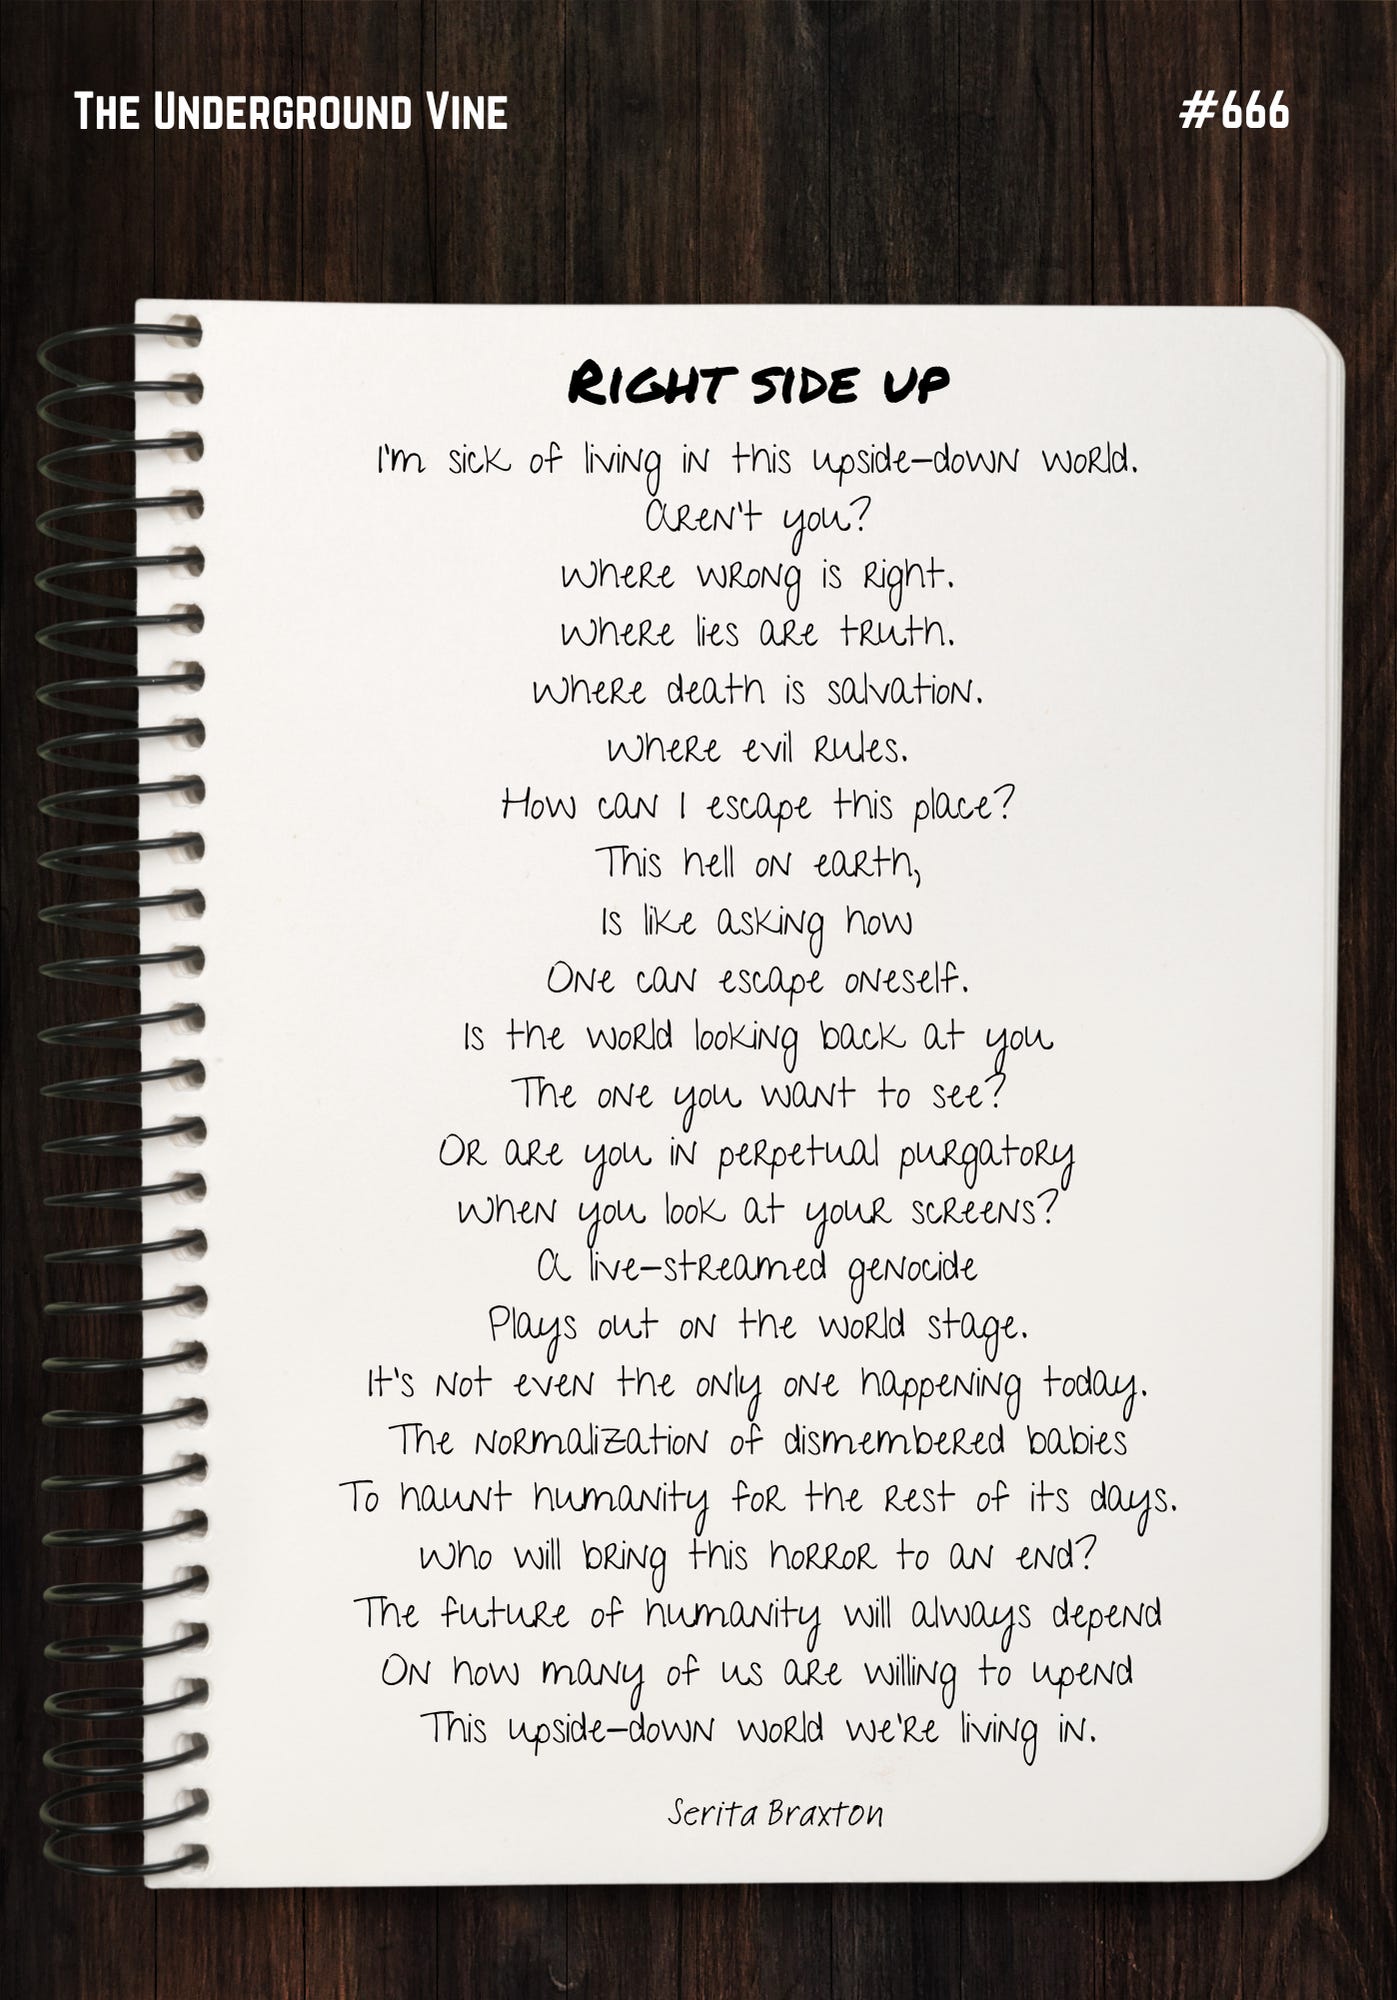 The Underground Vine
#666
Right side up
I'm sick of living in this upside-down world.
Aren't you?
Where wrong is right.
Where lies are truth.
Where death is salvation.
Where evil rules.
How can I escape this place?
This hell on earth,
Is like asking how
One can escape oneself.
Is the world looking back at you
The one you want to see?
Or are you in perpetual purgatory
When you look at your screens?
A live-streamed genocide
Plays out on the world stage.
It's not even the only one happening today.
The normalization of dismembered babies
To haunt humanity for the rest of its days.
Who will bring this horror to an end?
The future of humanity will always depend
On how many of us are willing to upend
This upside-down world we're living in.
Serita Braxton